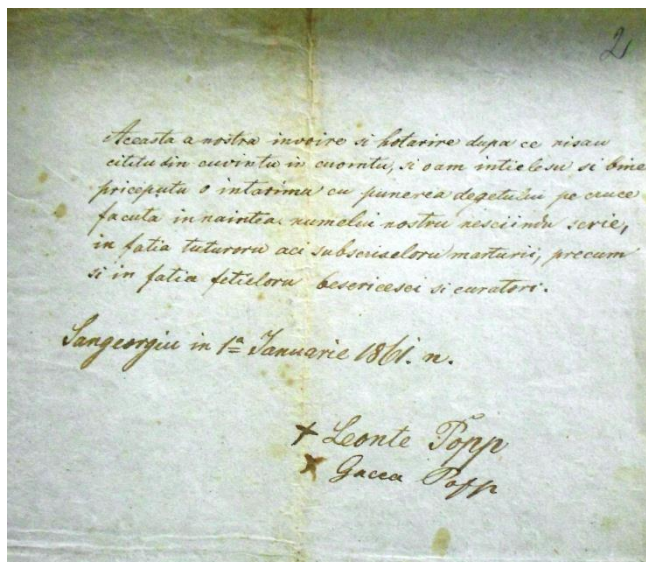 2
Aceasta a nostra invoire si hotarire dupa ce nisau
cititu din cuvintu in cuvintu, si oam intielesu si bine
priceputu o intarimu cu punerea degetului pe cruce
facuta in naintea numelui nostru nesciindu scrie,
in fatia tuturoru aci subscriseloru marturii, precum
si in fatia fetieloru besericesci si curatori.
Sangeorgiu in 1ª Januarie 1861. n.
+ Leonte Popp
+ Gacea Popp